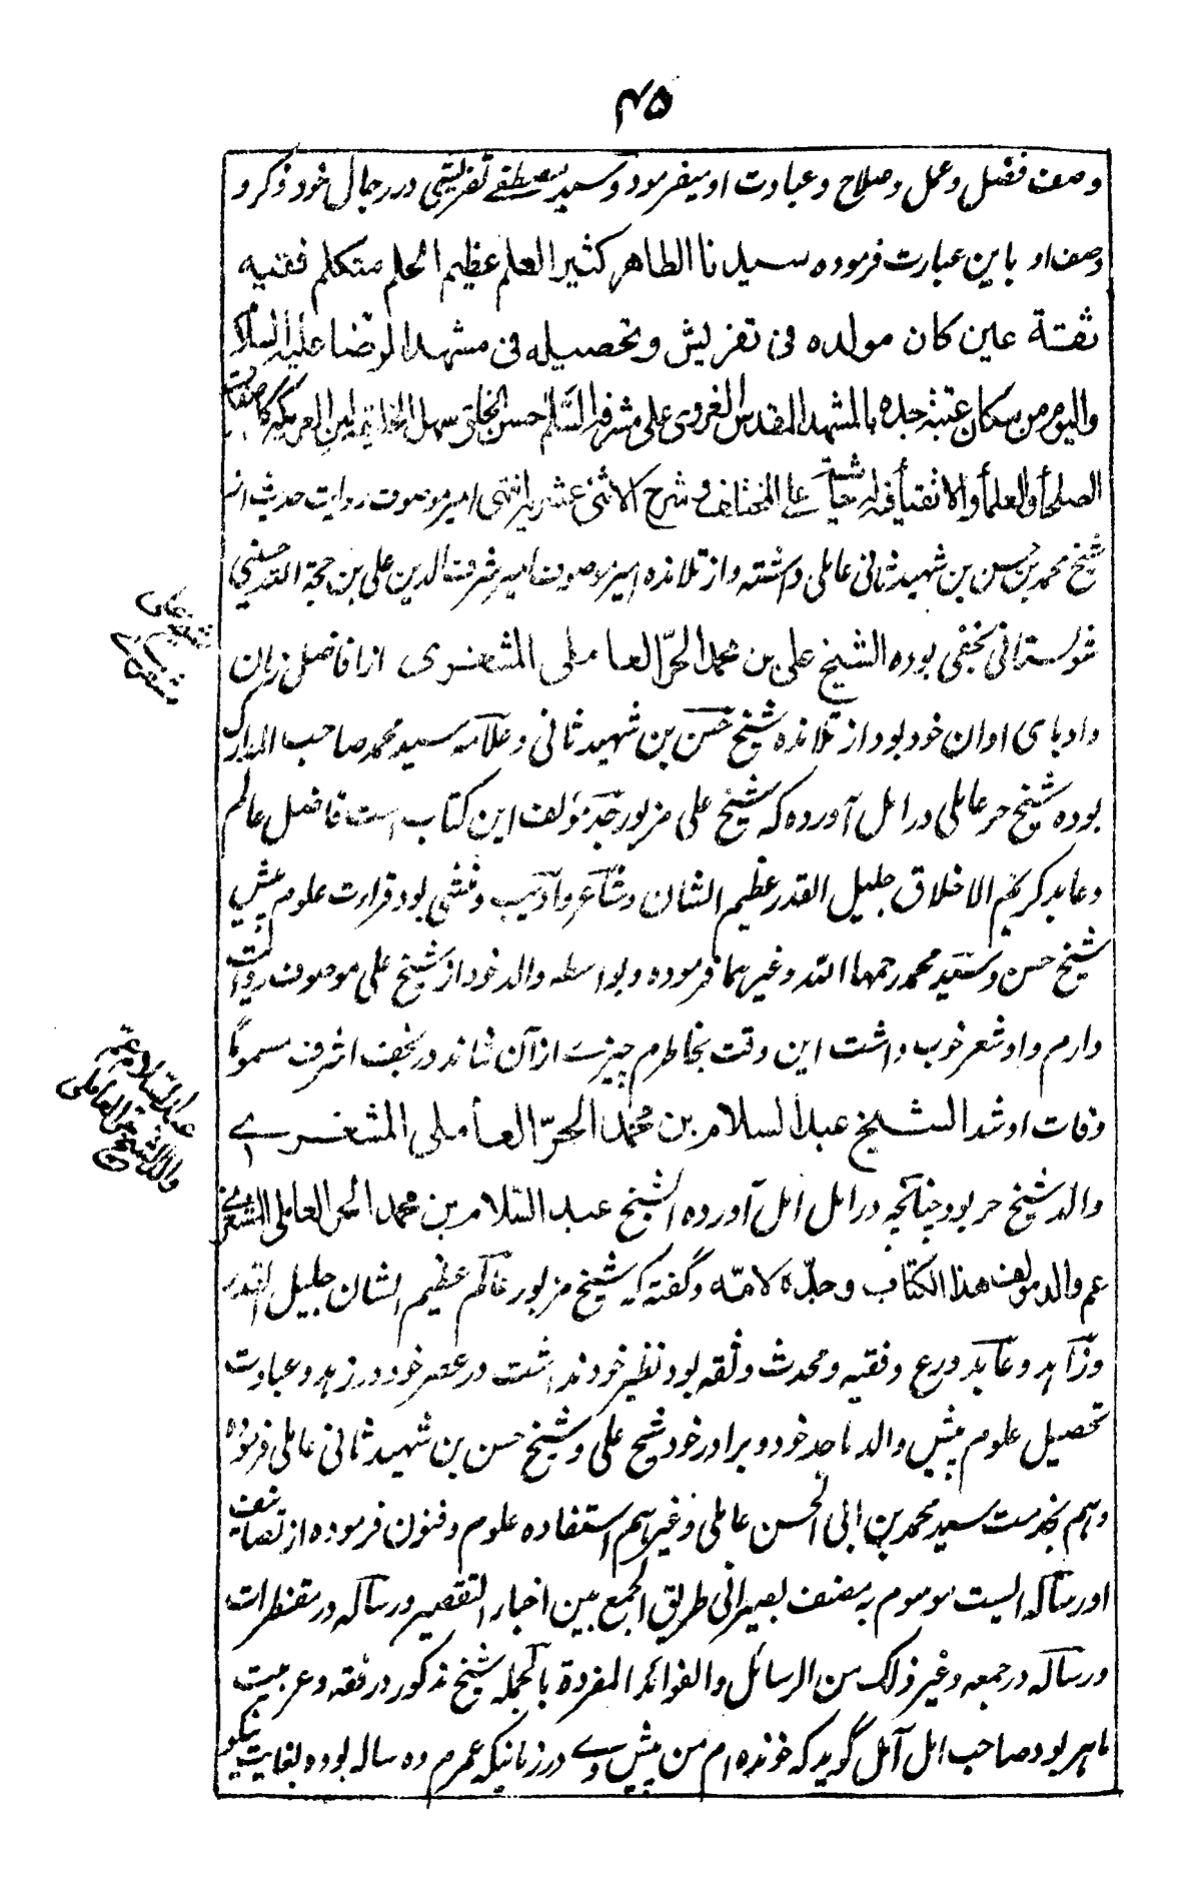 ۴۵
وصف فضل و عمل و صلاح و عبادت او میفرمود و سید مصطفے تفریشی در رجال خود ذکر و
وصف او باین عبارت فرموده سیدنا الطاهر کثیر العلم عظیم الحلم متکلم فقیه
ثقة عین کان مولده فی تفریش و تحصیله فی مشهد الرضا علیه السلام
والیوم من سکان عتبة جده بالمشهد المقدس الغروی علی مشرفه السلام حسن الخلق سهل الخلیقة لین العریکة کل صفات
الصلحأ والعلمأ والاتقیأ فیه له حاشیة علی المختلف و شرح الاثنی عشریه انتهی امیر موصوف روایت حدیث از
شیخ محمد بن حسن بن شهید ثانی عاملی داشته و از تلامذه امیر موصوف امیر شرف الدین علی بن حجة الله حسنی
شولستانی نجفی بوده الشیخ علی بن محمد الحرّ العاملی المشغری از افاضل زمان
و ادبای اوان خود بود از تلامذه شیخ حسن بن شهید ثانی و علامه سید محمد صاحب المدارک
بوده شیخ حر عاملی در امل آورده که شیخ علی مزبور جد مؤلف این کتاب است فاضل عالم
و عابد کریم الاخلاق جلیل القدر عظیم الشان و شاعر و ادیب و منشی بود قرارت علوم پیش
شیخ حسن و سید محمد رحمهما الله و غیرهما فرموده و بواسطه والد خود از شیخ علی موصوف روایت
دارم و او شعر خوب داشت این وقت بخاطرم چیزے از آن نماند در نجف اشرف مسموماً
وفات او شد الشیخ عبد السلام بن محمد الحرّ العاملی المشغرے
والد شیخ حر بود چنانچه در امل امل آورده الشیخ عبد السلام بن محمد الحر العاملی المشغری
عم والد مولف هذا الکتاب و جدّه لامّه و گفته که شیخ مزبور عالم عظیم الشان جلیل القدر
و زاهد و عابد و ورع و فقیه و محدث و ثقه بود نظیر خود نداشت در عصر خود در زهد و عبادت
تحصیل علوم پیش والد ماجد خود و برادر خود شیخ علی و شیخ حسن بن شهید ثانی عاملی فرموده
و هم بخدمت سید محمد بن ابی الحسن عاملی و غیرهم استفاده علوم و فنون فرموده از تصانیف
او رساله ایست موسوم به مصنف بصیر انی طریق الجمع بین اخبار التقصیر و رساله در مفطرات
و رساله در جمعه و غیر ذلک من الرسائل و الفوائد المفردة بالجمله شیخ مذکور در فقه و عربیت
ماهر بود صاحب امل آمل گوید که خونده ام من پیش وے در زمانیکه عمرم ده ساله بوده بغایت نیکو
شیخ علی
مشغری
عبد السلام عم
والد الشیخ حر العاملی